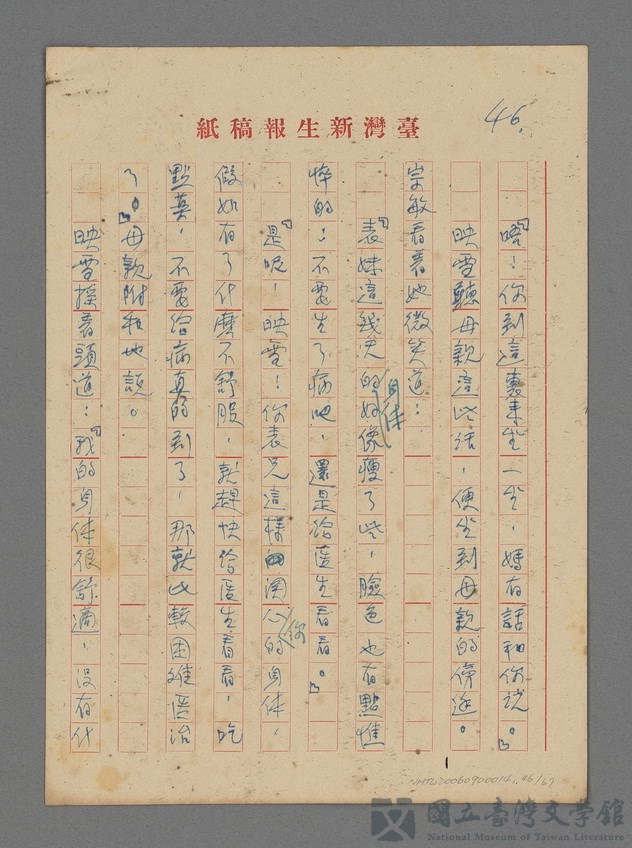 46.
臺灣新生報稿紙
「唔!你到這裏來坐一坐,媽有話和你說。」
映雪聽母親這些話,便坐到母親的傍邊。
宗敏看着她微笑道:
「表妹這幾天的身体好像瘦了些,臉色也有點憔
悴的!不要生了病吧,還是給医生看看。」
「是呢!映雪!你表兄這樣関心你的身体,
假如有了什麼不舒服,就趕快給医生看看,吃
點藥,不要給病真的到了,那就比較困难医治
了。」母親附和地說。
映雪搖着頭道:「我的身体很舒適,沒有什
NMTL20060900014.46/67
國立臺灣文學館
National Museum of Taiwan Literature